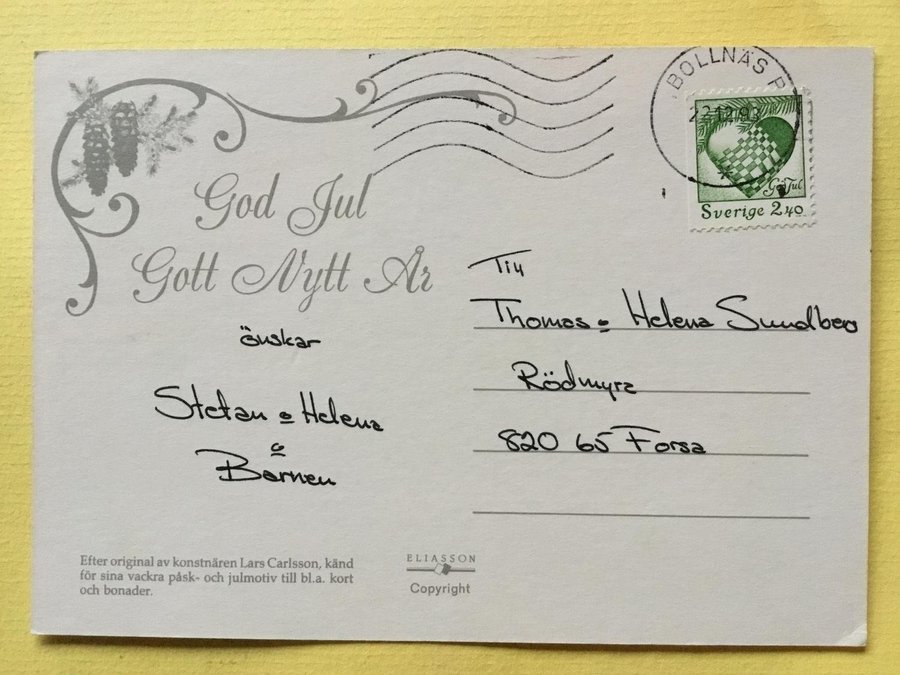 God Jul
Gott Nytt År
önskar
Stefan o Helena
o
Barnen
Efter original av konstnären Lars Carlsson, känd
för sina vackra påsk- och julmotiv till bl.a. kort
och bonader.
ELIASSON
Copyright
BOLLNÄS P
22.12.93
God Jul
Sverige 2.40
Till
Thomas o Helena Sundberg
Rödmyra
820 65 Forsa